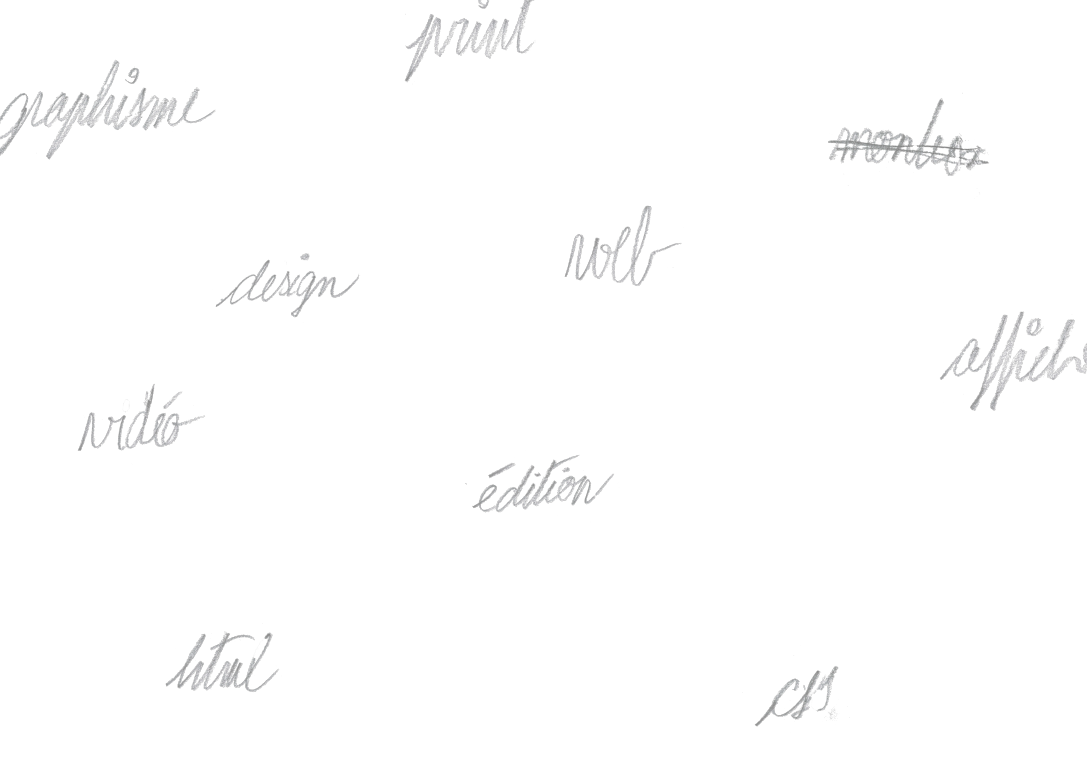 print
graphisme
web
design
affiche
vidéo
édition
html
css